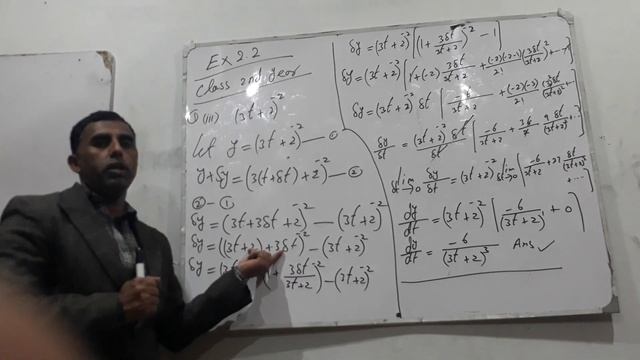 Ex 2.2
Class 2nd year
① (iii) (3t+2)^-2
Let y = (3t+2)^-2 — ①
y+δy = (3(t+δt)+2)^-2 — ②
② - ①
δy = (3t+3δt+2)^-2 - (3t+2)^-2
δy = ((3t+2)+3δt)^-2 - (3t+2)^-2
3δt/3t+2)^-2 - (3t+2)^-2
δy = (3t+2)^-2 [(1+ 3δt/3t+2)^-2 - 1]
δy = (3t+2)^-2 [1+(-2) 3δt/3t+2 + (-2)(-2-1)/2! (3δt/3t+2)^2 +
δy = (3t+2)^-2 δt [-6/3t+2 + (-2)(-3)/2!
δy/δt = (3t+2)^-2 δt/δt [-6/3t+2 +
lim δt→0 δy/δt = (3t+2)^-2 lim δt→0 [-6/3t+2 + 27 δt/(3t+2)^2 + ...]
dy/dt = (3t+2)^-2 [-6/(3t+2) + 0]
dy/dt = -6/(3t+2)^3 Ans ✓